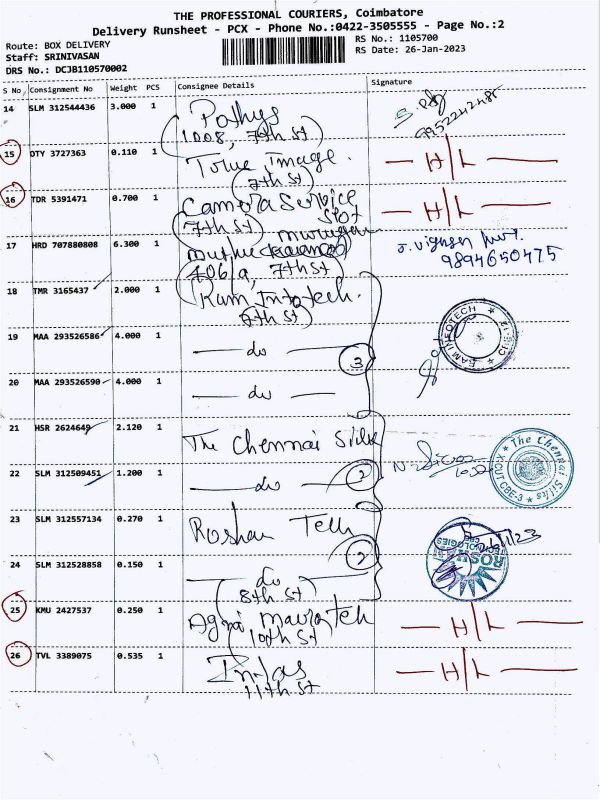 THE PROFESSIONAL COURIERS, Coimbatore
Delivery Runsheet - PCX - Phone No.:0422-3505555 - Page No.:2
Route: BOX DELIVERY
RS No.: 1105700
Staff: SRINIVASAN
RS Date: 26-Jan-2023
DRS No.: DCJB110570002
S No Consignment No Weight PCS Consignee Details Signature
14 SLM 312544436 3.000 1 Pothys
1008, 7th St
9952242485
15 OTY 3727363 0.110 1 True Image. H/L
7th St
16 TDR 5391471 0.700 1 Camera Service H/L
7th St Slot
17 HRD 707880808 6.300 1 Murugan
406/a, 7th St
9894650475
18 TMR 3165437 2.000 1 Ram Infotech.
7th St
19 MAA 293526586 4.000 1 do
3
RAM INFOTECH
20 MAA 293526590 4.000 1 do
21 HSR 2624649 2.120 1 The Chennai Silks
The Chennai Silks
X CUT CBE-3
22 SLM 312509451 1.200 1 do 2
23 SLM 312557134 0.270 1 Roshan Tech
2
24 SLM 312528858 0.150 1 do
8th St
25 KMU 2427537 0.250 1 Agni Maura Tech H/L
10th St
26 TVL 3389075 0.535 1 Intas H/L
11th St